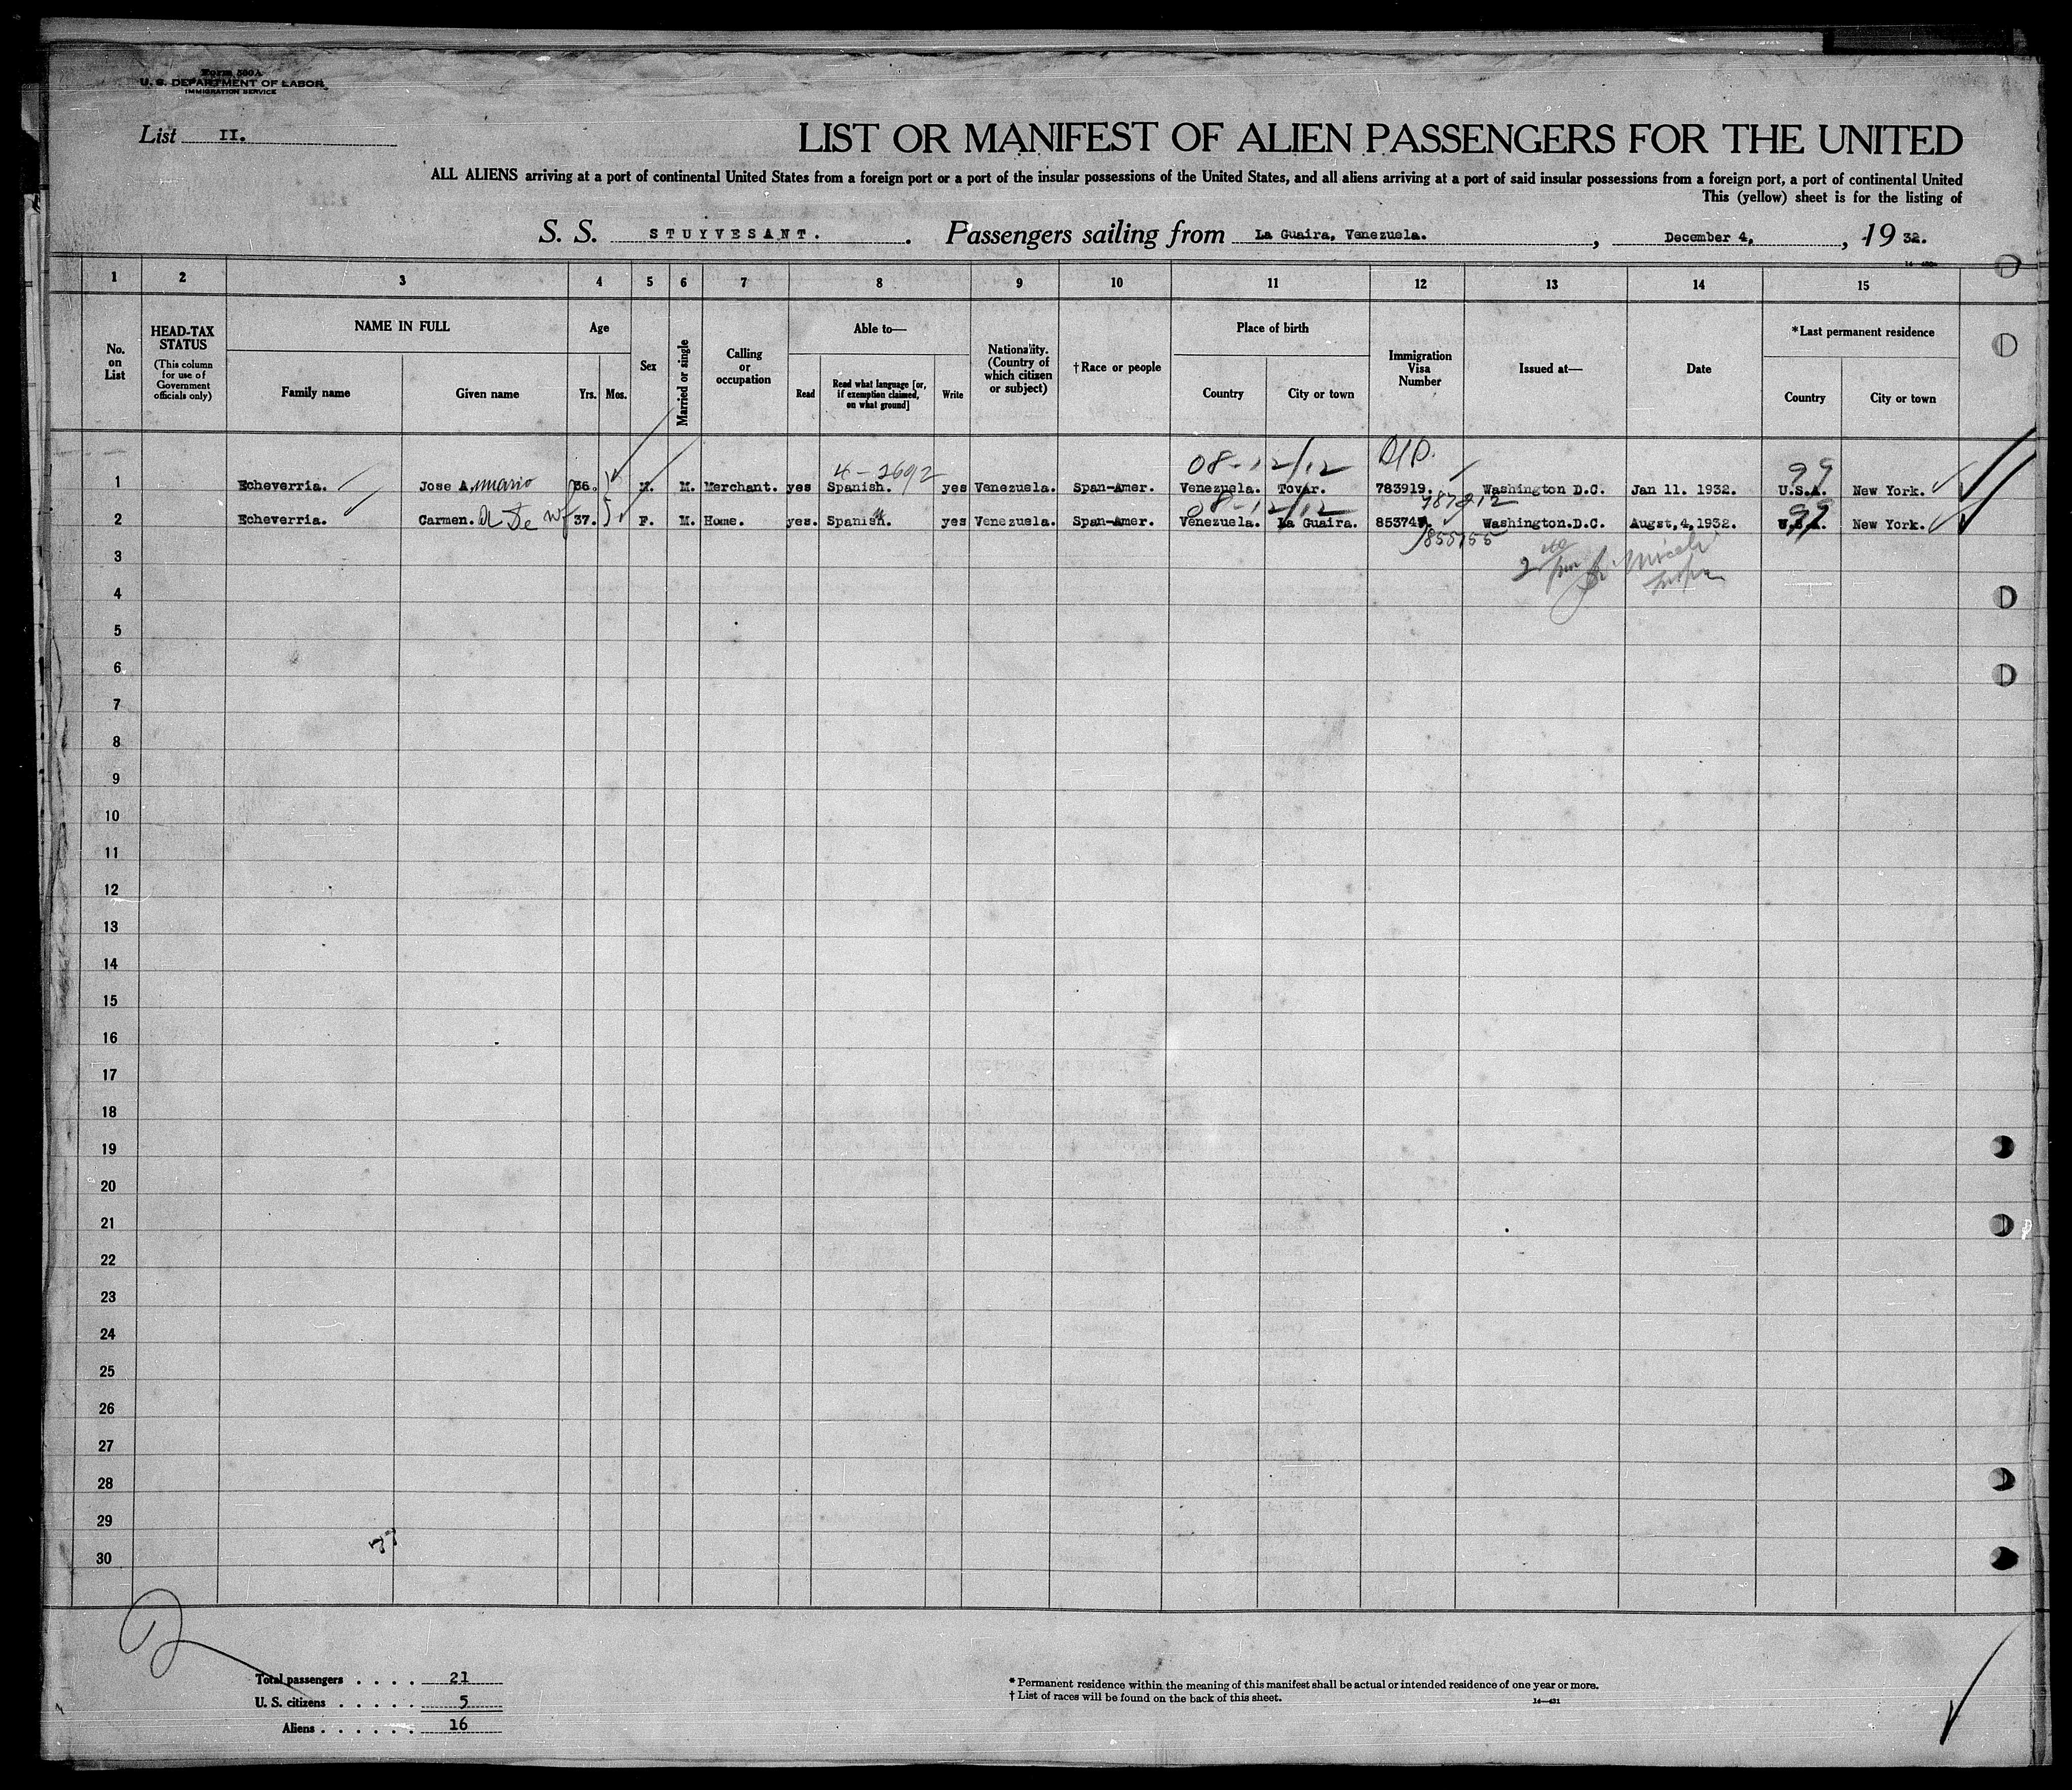 Form 500A
U. S. DEPARTMENT OF LABOR
IMMIGRATION SERVICE
List II.
LIST OR MANIFEST OF ALIEN PASSENGERS FOR THE UNITED
ALL ALIENS arriving at a port of continental United States from a foreign port or a port of the insular possessions of the United States, and all aliens arriving at a port of said insular possessions from a foreign port, a port of continental United
This (yellow) sheet is for the listing of
S. S. STUYVESANT. . Passengers sailing from La Guaira, Venezuela. , December 4, , 19 32.
1 2 3 4 5 6 7 8 9 10 11 12 13 14 15
No. on List
HEAD-TAX STATUS
(This column for use of Government officials only)
NAME IN FULL
Family name Given name
Age
Yrs. Mos.
Sex
Married or single
Calling or occupation
Able to—
Read Read what language [or, if exemption claimed, on what ground] Write
Nationality. (Country of which citizen or subject)
†Race or people
Place of birth
Country City or town
Immigration Visa Number
Issued at—
Date
*Last permanent residence
Country City or town
4-2692 08-12/12 99
1 Echeverria. Jose A. 36. M. M. Merchant. yes Spanish. yes Venezuela. Span-Amer. Venezuela. Tovar. 783919. Washington D.C. Jan 11. 1932. U.S.A. New York.
08-12/12 787912 99
2 Echeverria. Carmen. A de wf 37. F. M. Home. yes. Spanish. yes Venezuela. Span-Amer. Venezuela. La Guaira. Washington.D.C. Augst,4,1932. U.S.A. New York.
855755
3
4
5
6
7
8
9
10
11
12
13
14
15
16
17
18
19
20
21
22
23
24
25
26
27
28
29
30
Total passengers . . . . 21
U. S. citizens . . . . . 5
Aliens . . . . . . 16
* Permanent residence within the meaning of this manifest shall be actual or intended residence of one year or more.
† List of races will be found on the back of this sheet. 14—431